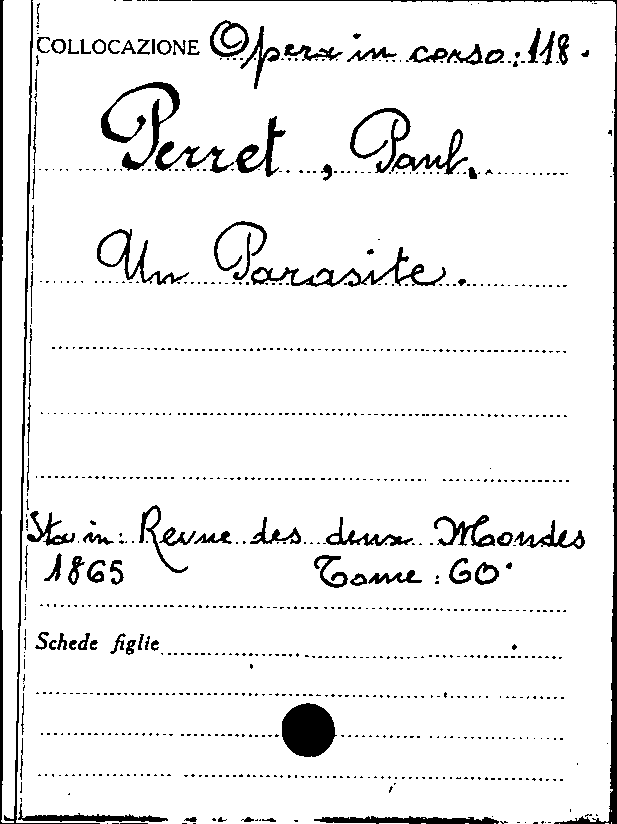 COLLOCAZIONE Opera in corso: 118.
Perret, Paul.
Un Parasite.
Sta in: Revue des deux Mondes
1865 Tome: 60°
Schede figlie